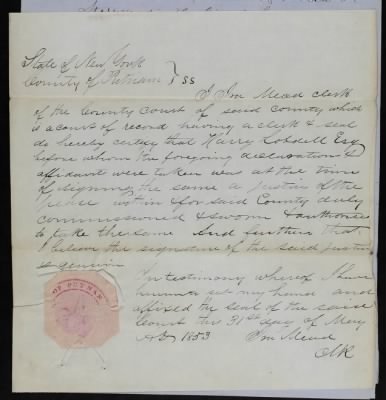 State of New York
County of Putnam } SS
I Ira Mead clerk
of the County Court of said County which
is a court of record having a clerk & seal
do hereby certify that Harry Lobdell Esq
before whom the foregoing declaration &
affidavit were taken was at the time
of signing the same a justice of the
peace in & for said County duly
commissioned & sworn & authorized
to take the same And further that
I believe the signature of the said justice
is genuine
In testimony whereof I have
hereunto set my hand and
affixed the seal of the said
Court this 31st day of May
AD 1853 Ira Mead
Clk
OF PUTNAM